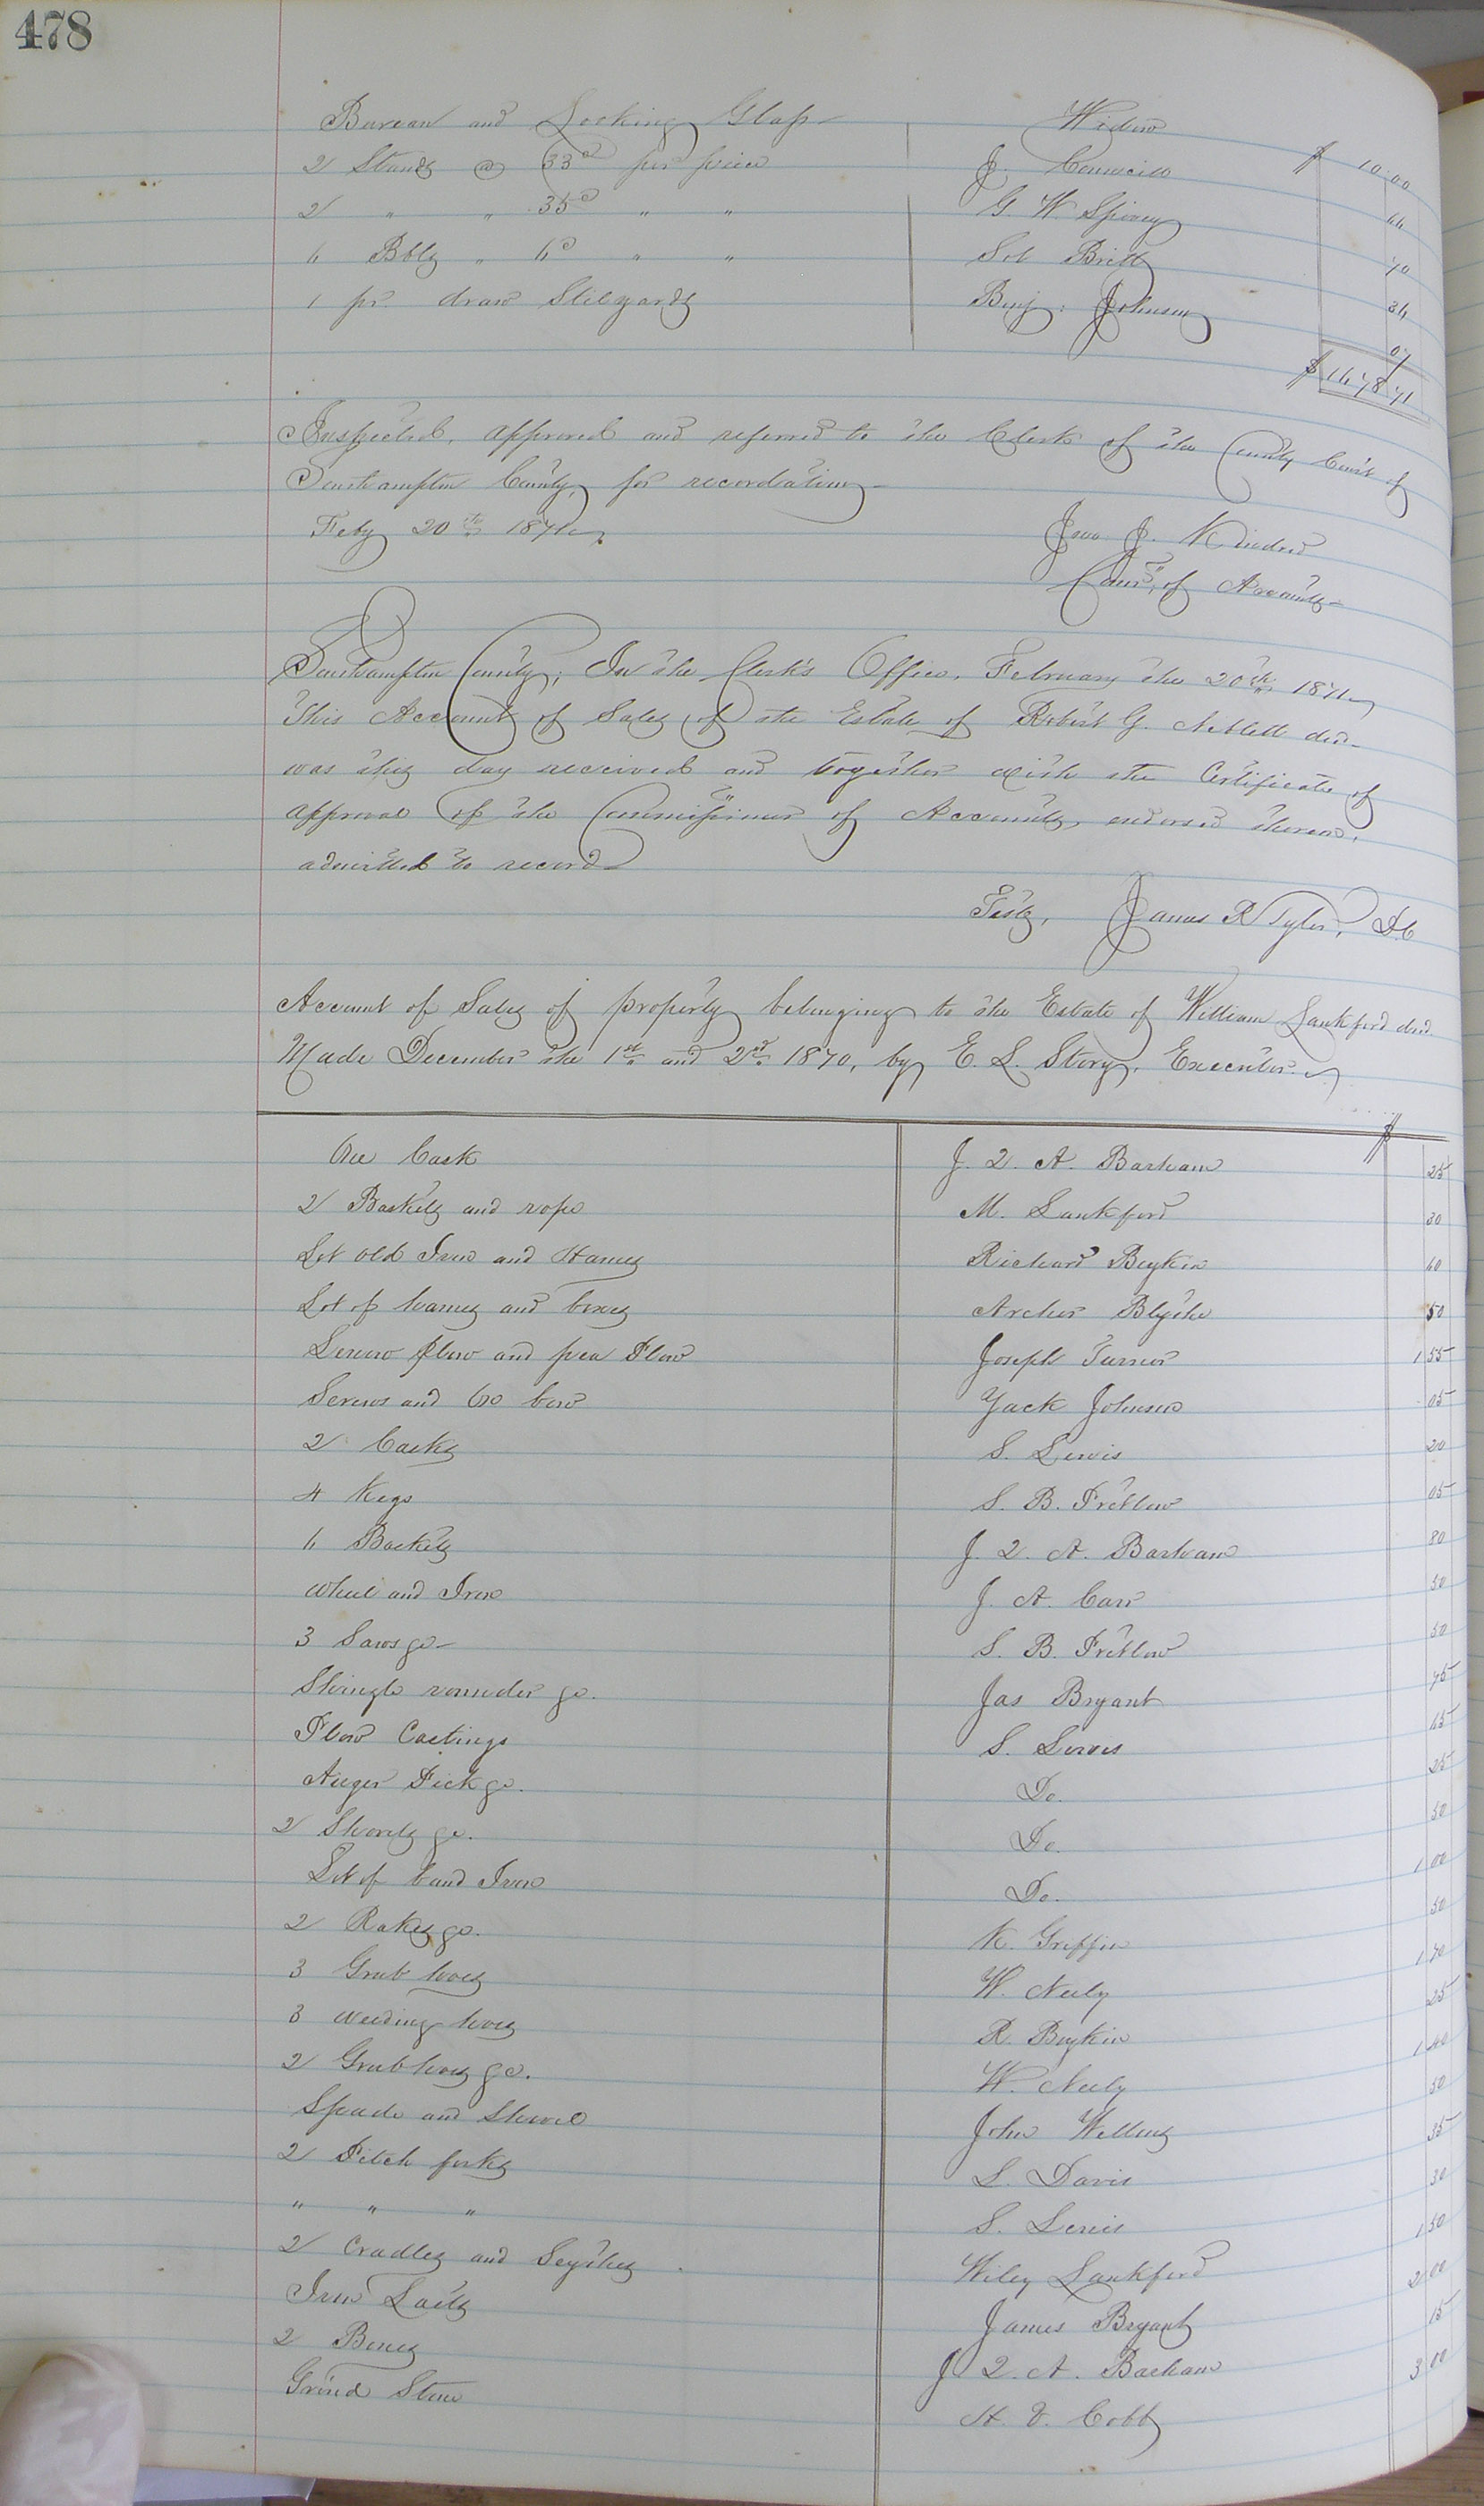 478
Bureau and Looking Glass Widow $ 10.00
2 Stands @ 33c per piece J. Councill 66
2 " " 35c " " G. W. Spivey 70
6 Bbls " 6c " " Sol Britt 36
1 pr. draw Stilyards Benj: Johnson 07
$1678.71
Inspected, approved and referred to the Clerk of the County Court of
Southampton County, for recordation
Feby 20th 1871
Jno. J. Kindred
Comr. of Accounts
Southampton County; In the Clerk's Office, February the 20th 1871
This Account of Sales of the Estate of Robert G. Neblett decd.
was this day received and together with the Certificate of
approval of the Commissioner of Accounts, endorsed thereon,
admitted to record
Teste, James R Tyler, D.C
Account of Sales of property belonging to the Estate of William Lankford decd.
Made December the 1st and 2nd 1870, by E. L. Story, Executor.
$
One Cask J. Q. A. Barham 25
2 Baskets and rope M. Lankford 30
Lot old Iron and Hames Richard Boykin 60
Lot of hames and boxes Archer Blythe 50
Screw plow and pea Plow Joseph Turner 1 55
Screws and Ox bow Jack Johnson 05
2 Casks S. Lewis 20
4 Kegs S. B. Pretlow 05
6 Baskets J. Q. A. Barham 80
Wheel and Iron J. A. Carr 50
3 Saws go S. B. Pretlow 50
Shingle rounder go. Jas Bryant 75
Plow Castings S. Lewis 15
Auger Pick go. Do. 25
2 Shovels go. Do. 50
Lot of band Iron Do. 1 00
2 Rakes go. K. Griffin 50
3 Grub hoes W. Neely 1 70
3 Weeding hoes R. Boykin 25
2 Grub hoes go. W. Neely 1 40
Spade and Shovel John Wellons 50
2 Pitch forks S. Davis 35
" " " S. Lewis 30
2 Cradles and Scythes Wiley Lankford 1 50
Iron Lasts James Bryant 2 00
2 Boxes J Q. A. Barham 15
Grind Stone H. V. Cobb 3 00